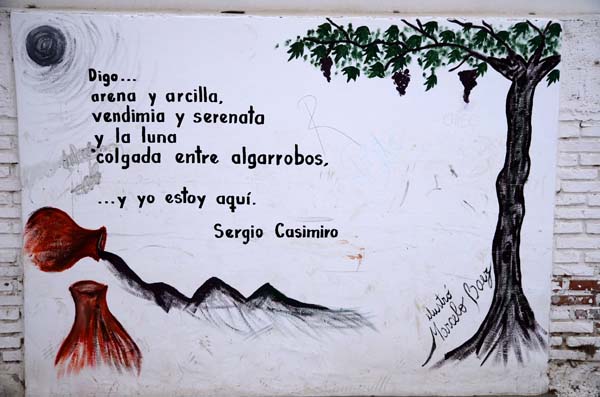 Digo...
arena y arcilla,
vendimia y serenata
y la luna
colgada entre algarrobos,
...y yo estoy aquí.
Sergio Casimiro
ilustró
Marcelo Báez